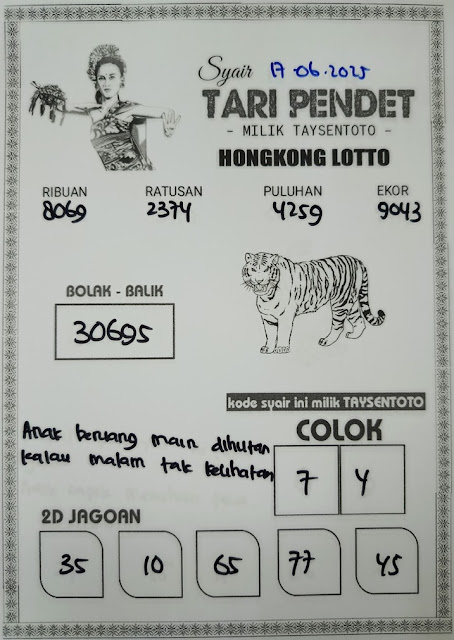 Syair 17-06-2025
TARI PENDET
- MILIK TAYSENTOTO -
HONGKONG LOTTO
RIBUAN RATUSAN PULUHAN EKOR
8069 2374 4259 9043
BOLAK - BALIK
30695
kode syair ini milik TAYSENTOTO
Anak beruang main dihutan
kalau malam tak kelihatan
COLOK
7 4
2D JAGOAN
35 10 65 77 45